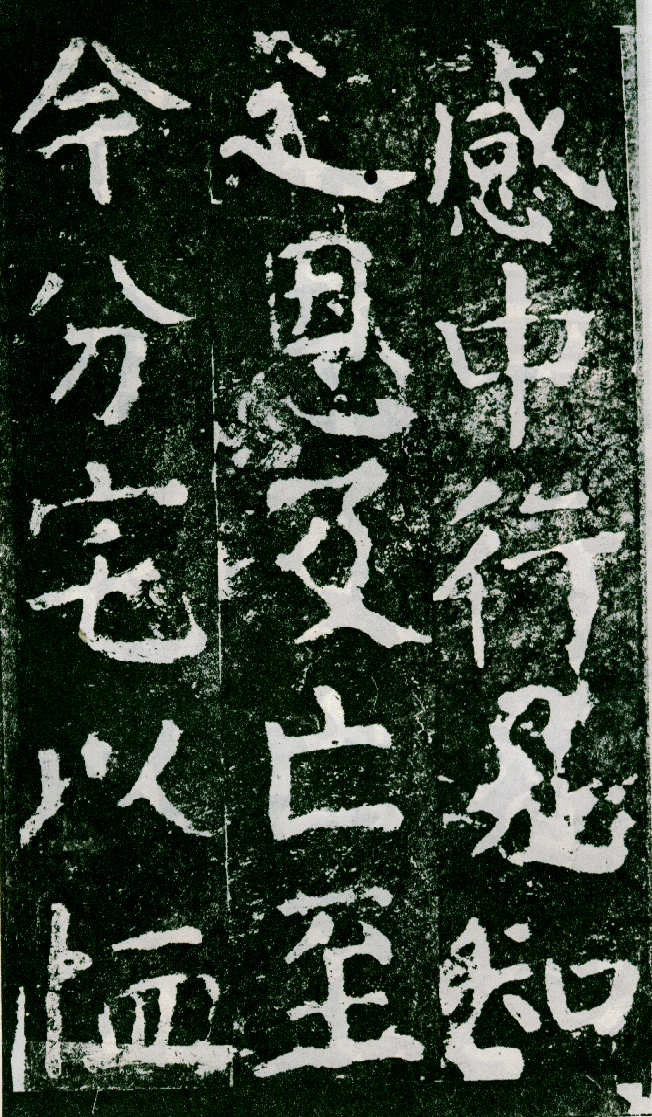 感中行是知
之恩及亡至
今分宅以恤